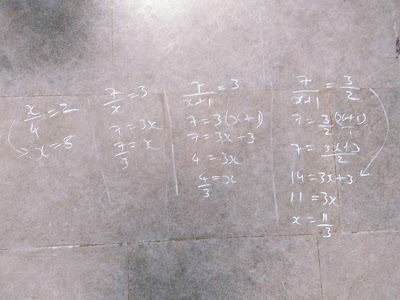 x/4 = 2
x = 8
7/x = 3
7 = 3x
7/3 = x
7/(x+1) = 3
7 = 3(x+1)
7 = 3x+3
4 = 3x
4/3 = x
7/(x+1) = 3/2
7 = 3/2 (x+1)/1
7 = (3x+3)/2
14 = 3x+3
11 = 3x
x = 11/3